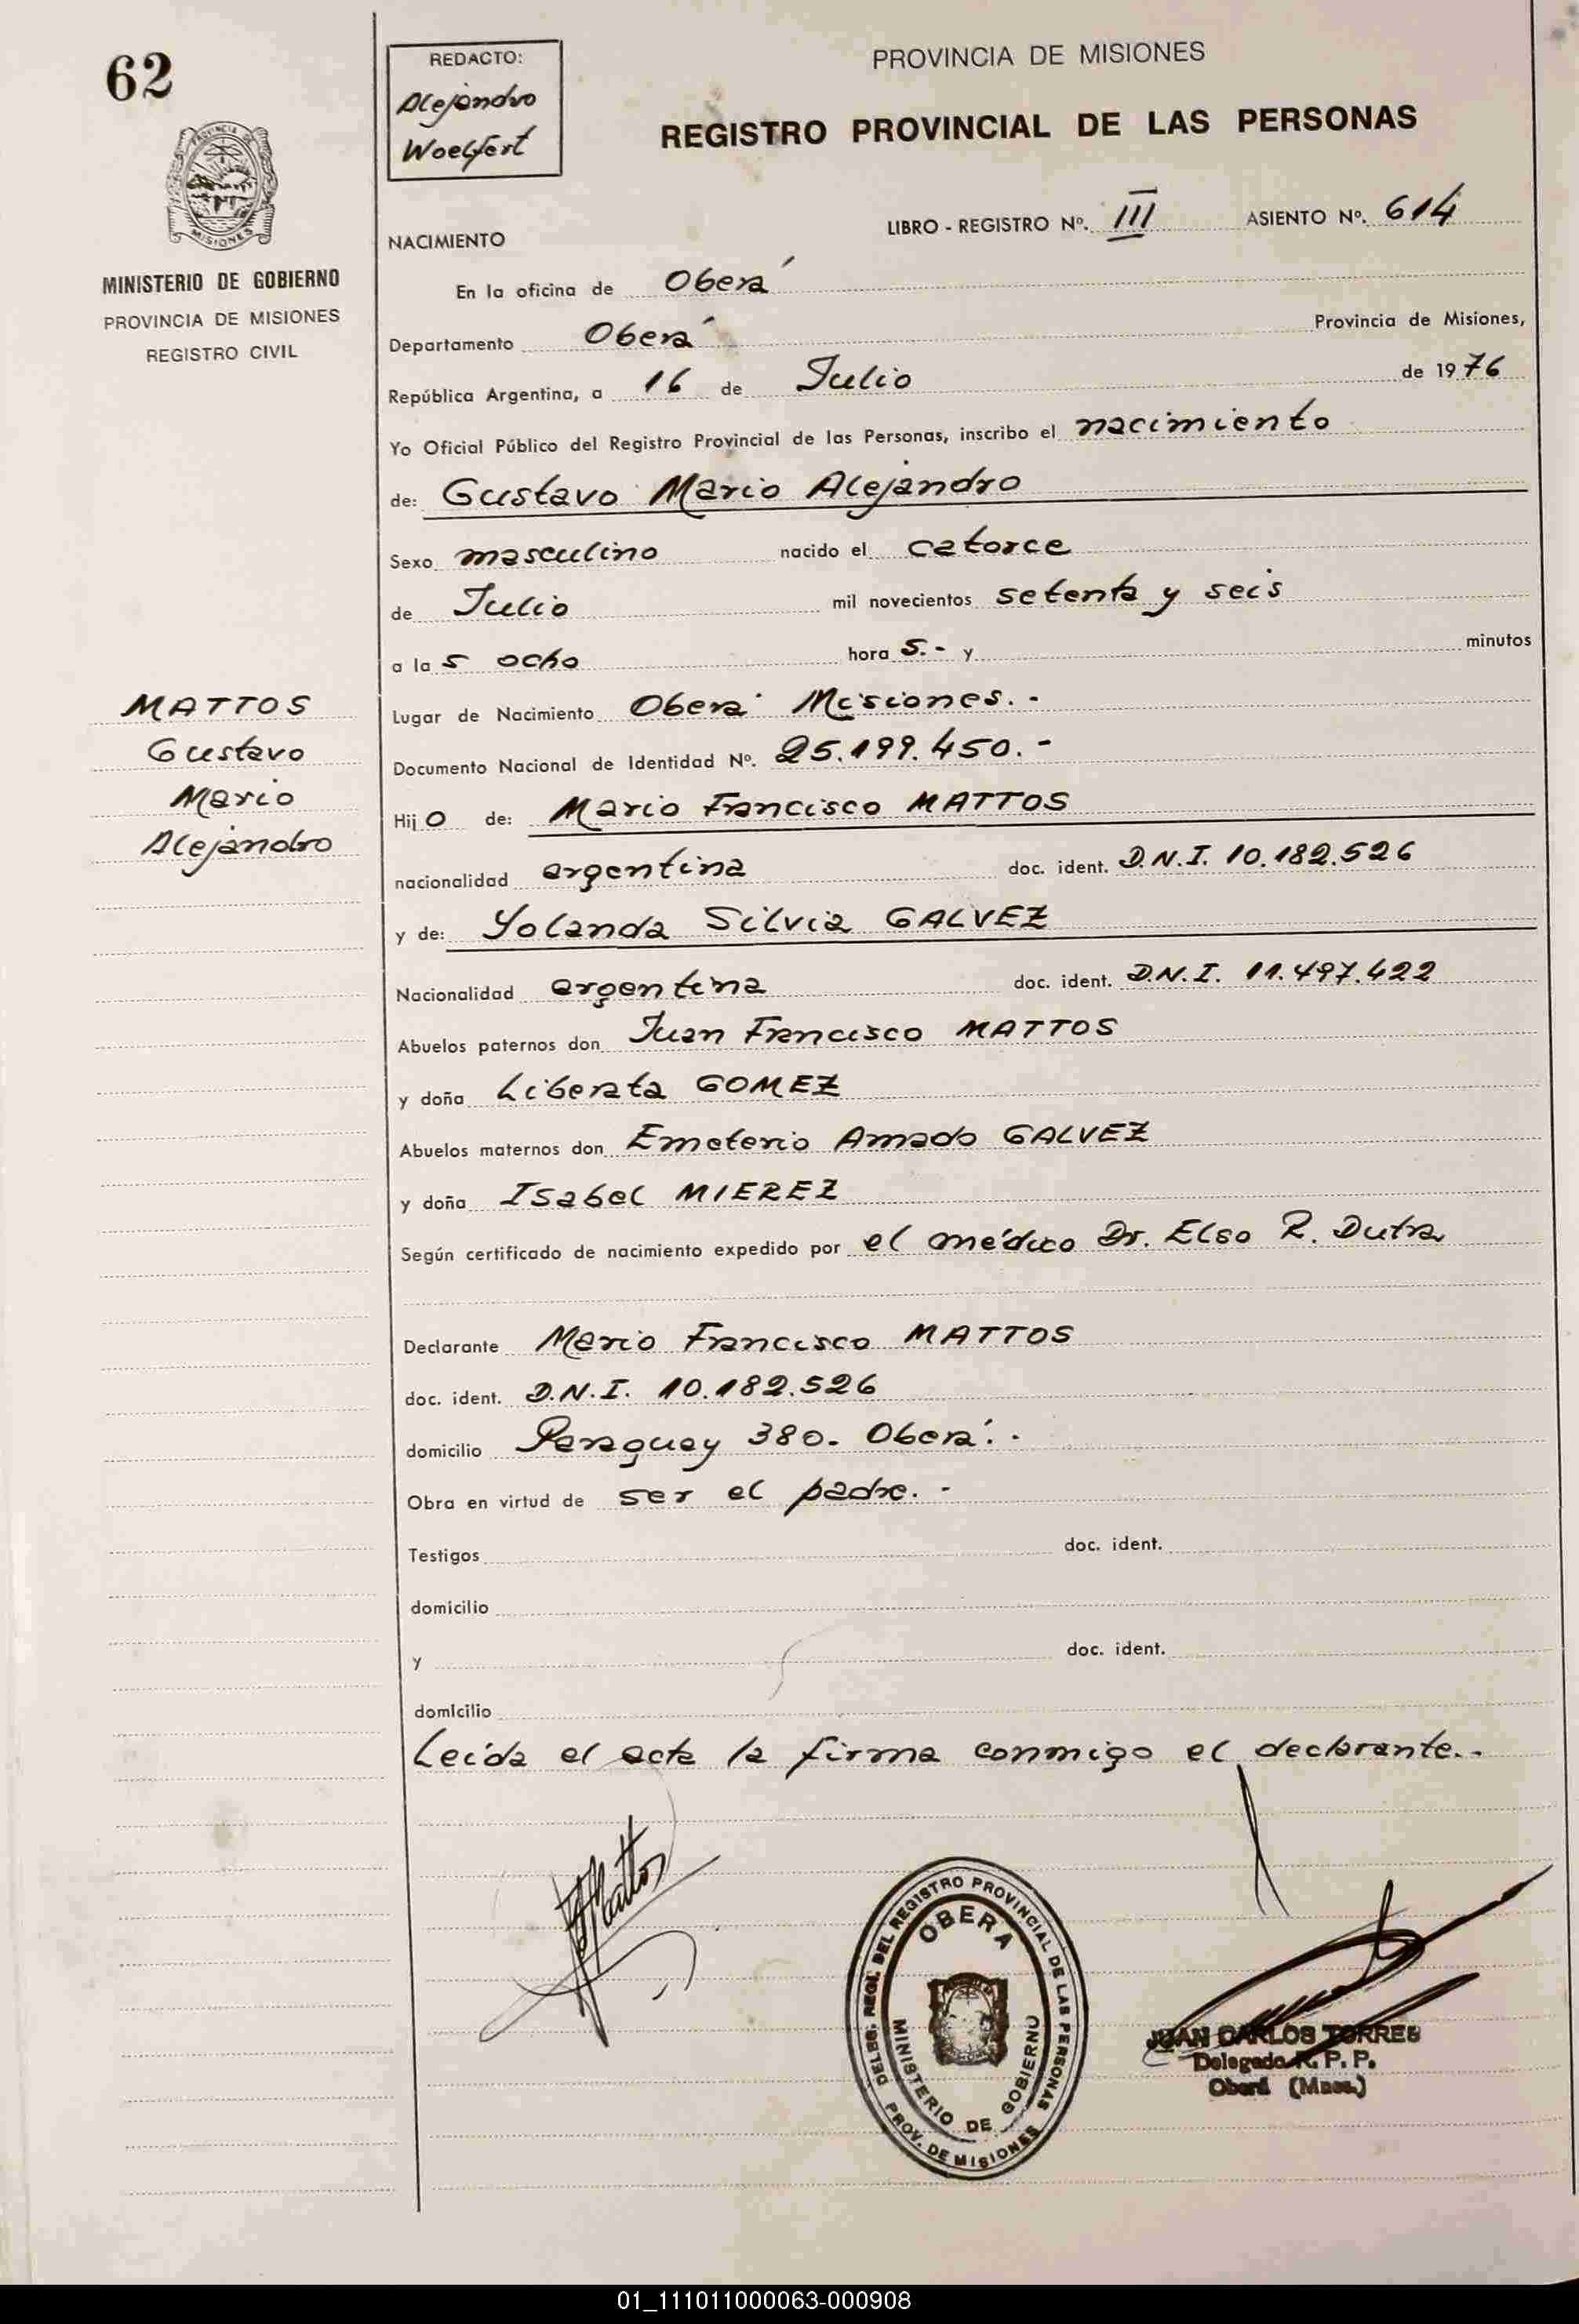 62
REDACTO:
Alejandro
Woelfert
PROVINCIA DE MISIONES
REGISTRO PROVINCIAL DE LAS PERSONAS
PROVINCIA DE
MISIONES
MINISTERIO DE GOBIERNO
PROVINCIA DE MISIONES
REGISTRO CIVIL
LIBRO - REGISTRO Nº. III ASIENTO Nº. 614
NACIMIENTO
En la oficina de Oberá
Departamento Oberá Provincia de Misiones,
República Argentina, a 16 de Julio de 1976
Yo Oficial Público del Registro Provincial de las Personas, inscribo el nacimiento
de: Gustavo Mario Alejandro
Sexo masculino nacido el catorce
de Julio mil novecientos setenta y seis
a la s ocho hora s.- y minutos
MATTOS
Gustavo
Mario
Alejandro
Lugar de Nacimiento Oberá Misiones.-
Documento Nacional de Identidad Nº. 25.199.450.-
Hij o de: Mario Francisco MATTOS
nacionalidad argentina doc. ident. D.N.I. 10.182.526
y de: Yolanda Silvia GALVEZ
Nacionalidad argentina doc. ident. D.N.I. 11.497.422
Abuelos paternos don Juan Francisco MATTOS
y doña Liberata GOMEZ
Abuelos maternos don Emeterio Amado GALVEZ
y doña Isabel MIEREZ
Según certificado de nacimiento expedido por el médico Dr. Elso R. Dutra
Declarante Mario Francisco MATTOS
doc. ident. D.N.I. 10.182.526
domicilio Paraguay 380. Oberá.-
Obra en virtud de ser el padre.-
Testigos doc. ident.
domicilio
y doc. ident.
domicilio
Leída el acta la firma conmigo el declarante.-
Mattos
DELEG. REGL. DEL REGISTRO PROVINCIAL DE LAS PERSONAS
OBERA
MINISTERIO DE GOBIERNO
PROV. DE MISIONES
JUAN CARLOS TORRES
Delegado R. P. P.
Oberá (Mnes.)
01_111011000063-000908